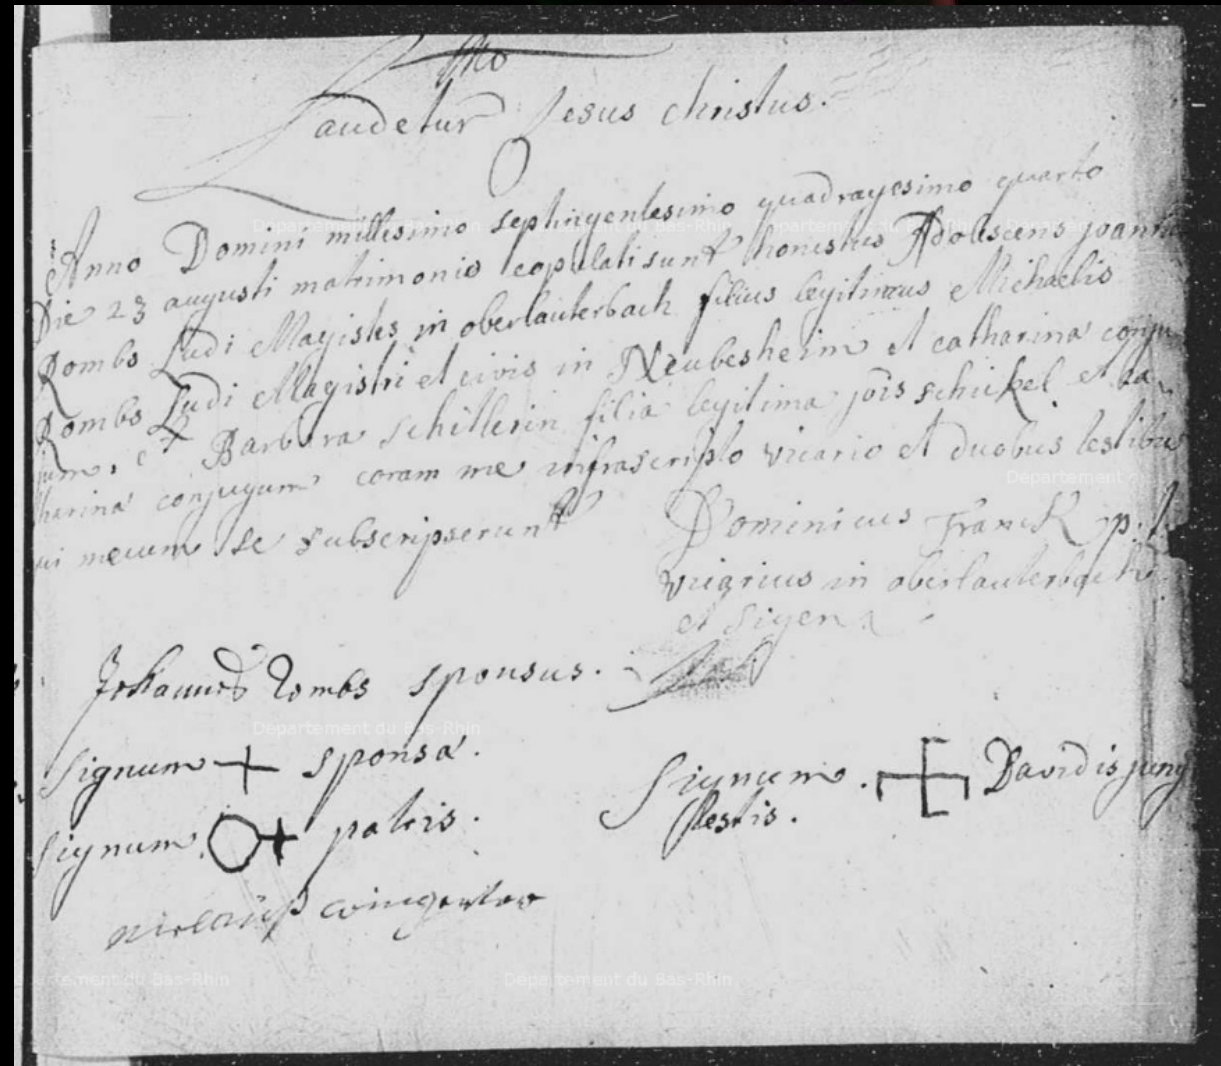 Laudetur Jesus Christus.
Anno Domini millesimo septingentesimo quadragesimo quarto
Die 23 augusti matrimonio copulati sunt honestus Adolescens joannes
Rombs Ludi Magister in oberlauterbach filius legitimus Michaelis
Rombs Ludi Magistri et civis in Neubesheim et catharina conju
gum, et Barbara schillerin filia legitima jois schickel et ca
tharina conjugum coram me infrascripto vicario et duobus testibus
qui mecum se subscripserunt
Dominicus Franck p.t.
vicarius in oberlauterbach
et Sigen
Johannes Rombs sponsus.
Signum + sponsa.
Signum patris.
Signum. Davidis jung
testis.
Département du Bas-Rhin
Département du Bas-Rhin
Département du Bas-Rhin
Département du Bas-Rhin